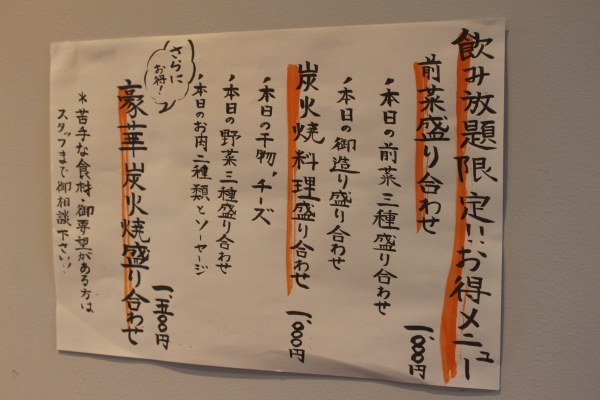 飲み放題限定!!お得メニュー
前菜盛り合わせ 一、〇〇〇円
・本日の前菜三種盛り合わせ
・本日の御造り盛り合わせ
炭火焼料理盛り合わせ 一、〇〇〇円
・本日の干物,チーズ
・本日の野菜三種盛り合わせ
・本日のお肉二種類とソーセージ
さらに
お得!
豪華炭火焼盛り合わせ 一、五〇〇円
*苦手な食材・御要望がある方は
スタッフまで御相談下さい!